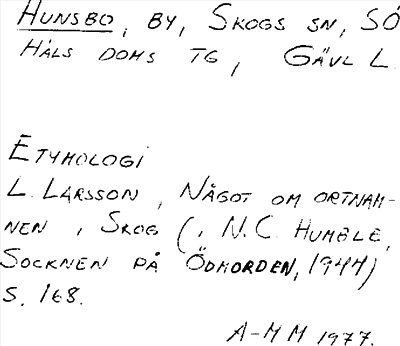 HUNSBO, BY, SKOGS SN, SÖ
HÄLS DOMS TG, GÄVL L.
ETYMOLOGI
L. LARSSON, NÅGOT OM ORTNAM-
NEN I SKOG (I N.C. HUMBLE,
SOCKNEN PÅ ÖDMORDEN, 1944)
S. 168.
A-M M 1977.